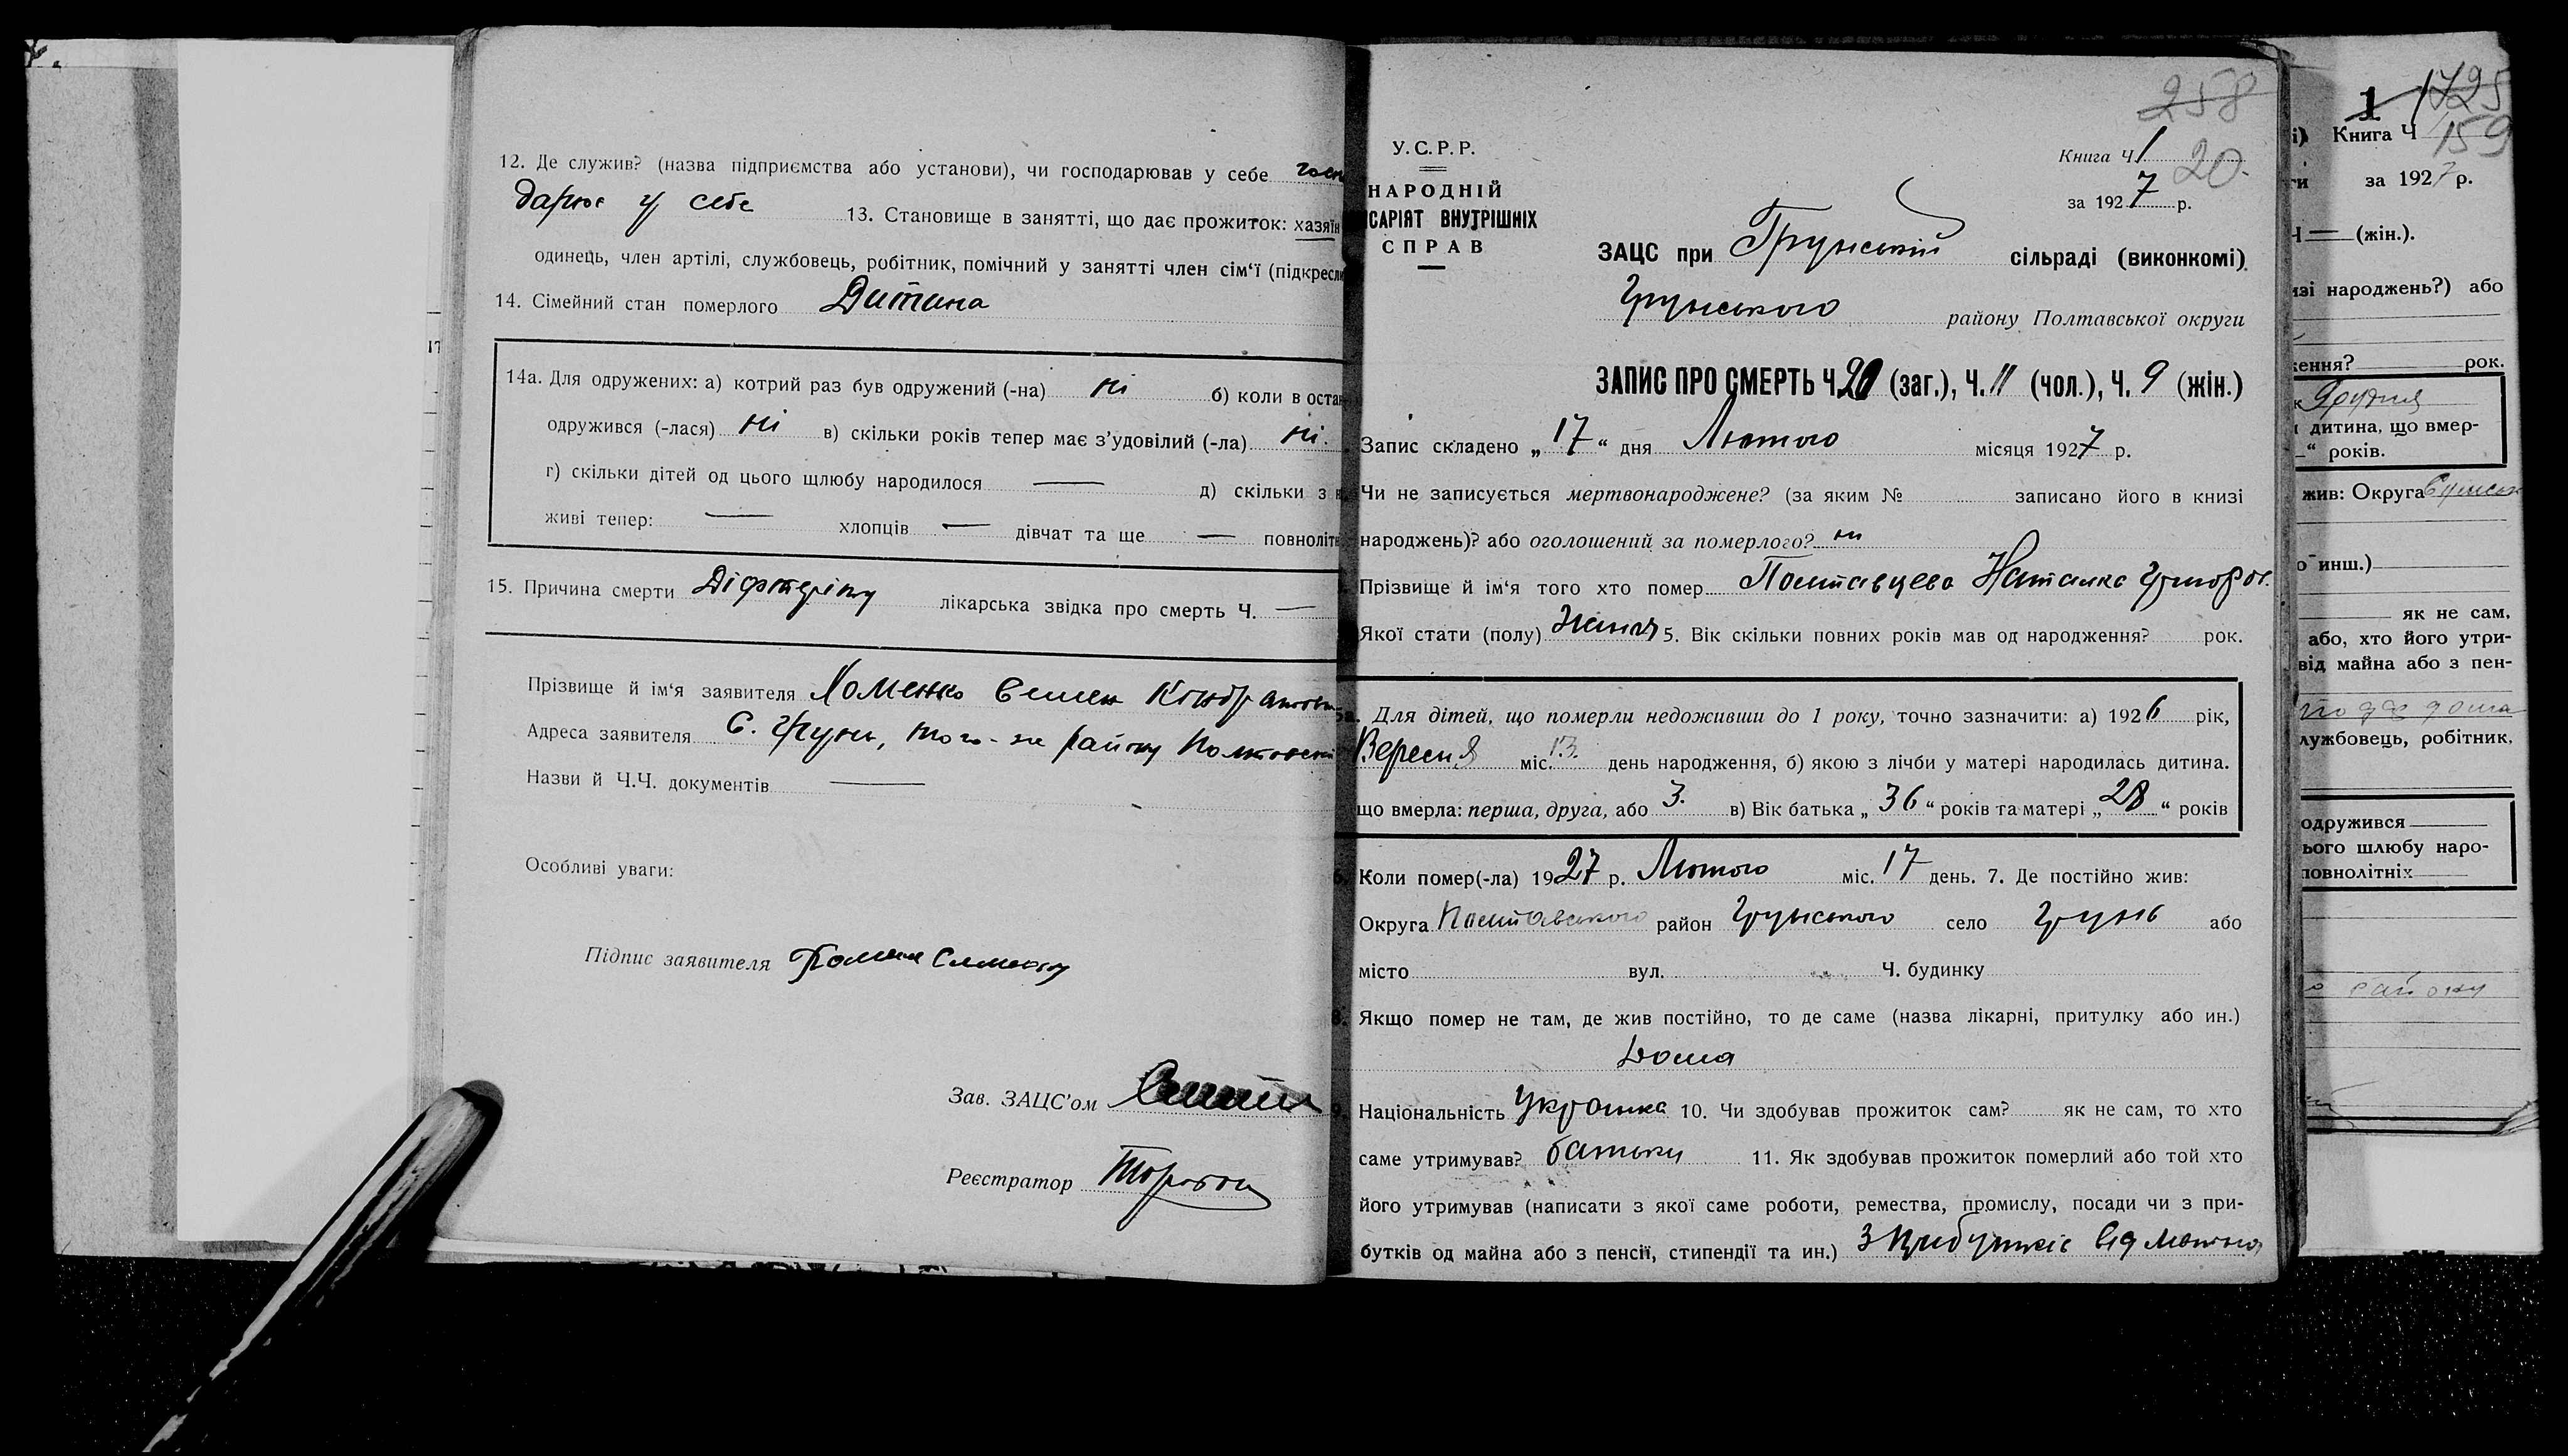 12. Де служив? (назва підприємства або установи), чи господарював у себе госп
дарює у себе 13. Становище в занятті, що дає прожиток: хазяїн
одинець, член артілі, службовець, робітник, помічний у занятті член сім‘ї (підкресли
14. Сімейний стан померлого Дитина
14а. Для одружених: а) котрий раз був одружений (-на) ні б) коли в остан
одружився (-лася) ні в) скільки років тепер має з’удовілий (-ла) ні.
г) скільки дітей од цього шлюбу народилося — д) скільки з н
живі тепер: — хлопців — дівчат та ще — повноліт
15. Причина смерти Діфтеріту лікарська звідка про смерть Ч. —
Прізвище й ім‘я заявителя Хоменко Семен Кіндратови
Адреса заявителя С. Грунь, того-же району Полтавськ
Назви й Ч.Ч. документів —
Особливі уваги:
Підпис заявителя
Зав. ЗАЦС’ом
Реєстратор
258
У.С.Р.Р.
Книга Ч 1 20.
НАРОДНІЙ
за 1927 р.
ІСАРІЯТ ВНУТРІШНІХ
СПРАВ
ЗАЦС при Грунській сільраді (виконкомі)
Грунського району Полтавської округи
ЗАПИС ПРО СМЕРТЬ Ч. 20 (заг.), Ч. 11 (чол.), Ч. 9 (жін.)
Запис складено „17“ дня Лютого місяця 1927 р.
Чи не записується мертвонароджене? (за яким № записано його в книзі
народжень)? або оголошений за померлого? ні
Прізвище й ім‘я того хто помер Полтавцева Наталка Григоров.
Якої стати (полу) 5. Вік скільки повних років мав од народження? рок.
5а. Для дітей, що померли недоживши до 1 року, точно зазначити: а) 1926 рік,
Вересня міс. 13. день народження, б) якою з лічби у матері народилась дитина.
що вмерла: перша, друга, або 3. в) Вік батька „36“ років та матері „28“ років
6. Коли помер(-ла) 1927 р. Лютого міс. 17 день. 7. Де постійно жив:
Округа Полтавського район Грунського село Грунь або
місто вул. Ч. будинку
8. Якщо помер не там, де жив постійно, то де саме (назва лікарні, притулку або ин.)
Дома
9. Національність Українка 10. Чи здобував прожиток сам? як не сам, то хто
саме утримував? батьки 11. Як здобував прожиток померлий або той хто
його утримував (написати з якої саме роботи, ремества, промислу, посади чи з при-
бутків од майна або з пенсії, стипендії та ин.) З прибутків від майна
1 1725
і) Книга Ч 159
ги за 1927 р.
Ч — (жін.).
изі народжень?) або
ження? рок.
к Грудня
дитина, що вмер-
“ років.
жив: Округа Сумськ
о инш.)
як не сам,
або, хто його утри-
від майна або з пен-
лужбовець, робітник,
одружився
ього шлюбу наро-
повнолітніх
о району
17